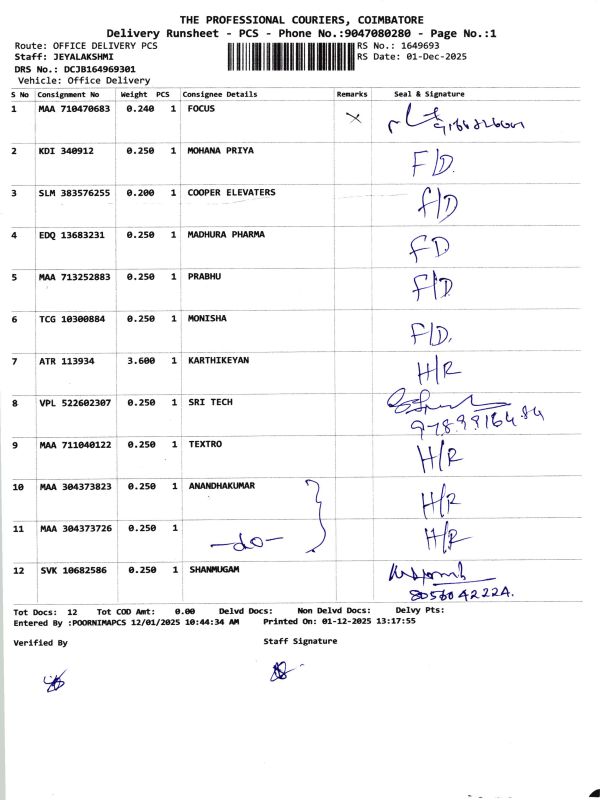 THE PROFESSIONAL COURIERS, COIMBATORE
Delivery Runsheet - PCS - Phone No.:9047080280 - Page No.:1
Route: OFFICE DELIVERY PCS RS No.: 1649693
Staff: JEYALAKSHMI RS Date: 01-Dec-2025
DRS No.: DCJB164969301
Vehicle: Office Delivery
S No Consignment No Weight PCS Consignee Details Remarks Seal & Signature
1 MAA 710470683 0.240 1 FOCUS X
2 KDI 340912 0.250 1 MOHANA PRIYA F/D.
3 SLM 383576255 0.200 1 COOPER ELEVATERS F/D
4 EDQ 13683231 0.250 1 MADHURA PHARMA FD
5 MAA 713252883 0.250 1 PRABHU F/D
6 TCG 10300884 0.250 1 MONISHA F/D.
7 ATR 113934 3.600 1 KARTHIKEYAN H/R
8 VPL 522602307 0.250 1 SRI TECH
9789916484
9 MAA 711040122 0.250 1 TEXTRO H/R
10 MAA 304373823 0.250 1 ANANDHAKUMAR H/R
11 MAA 304373726 0.250 1 -do- H/R
12 SVK 10682586 0.250 1 SHANMUGAM
8056042224.
Tot Docs: 12 Tot COD Amt: 0.00 Delvd Docs: Non Delvd Docs: Delvy Pts:
Entered By :POORNIMAPCS 12/01/2025 10:44:34 AM Printed On: 01-12-2025 13:17:55
Verified By Staff Signature